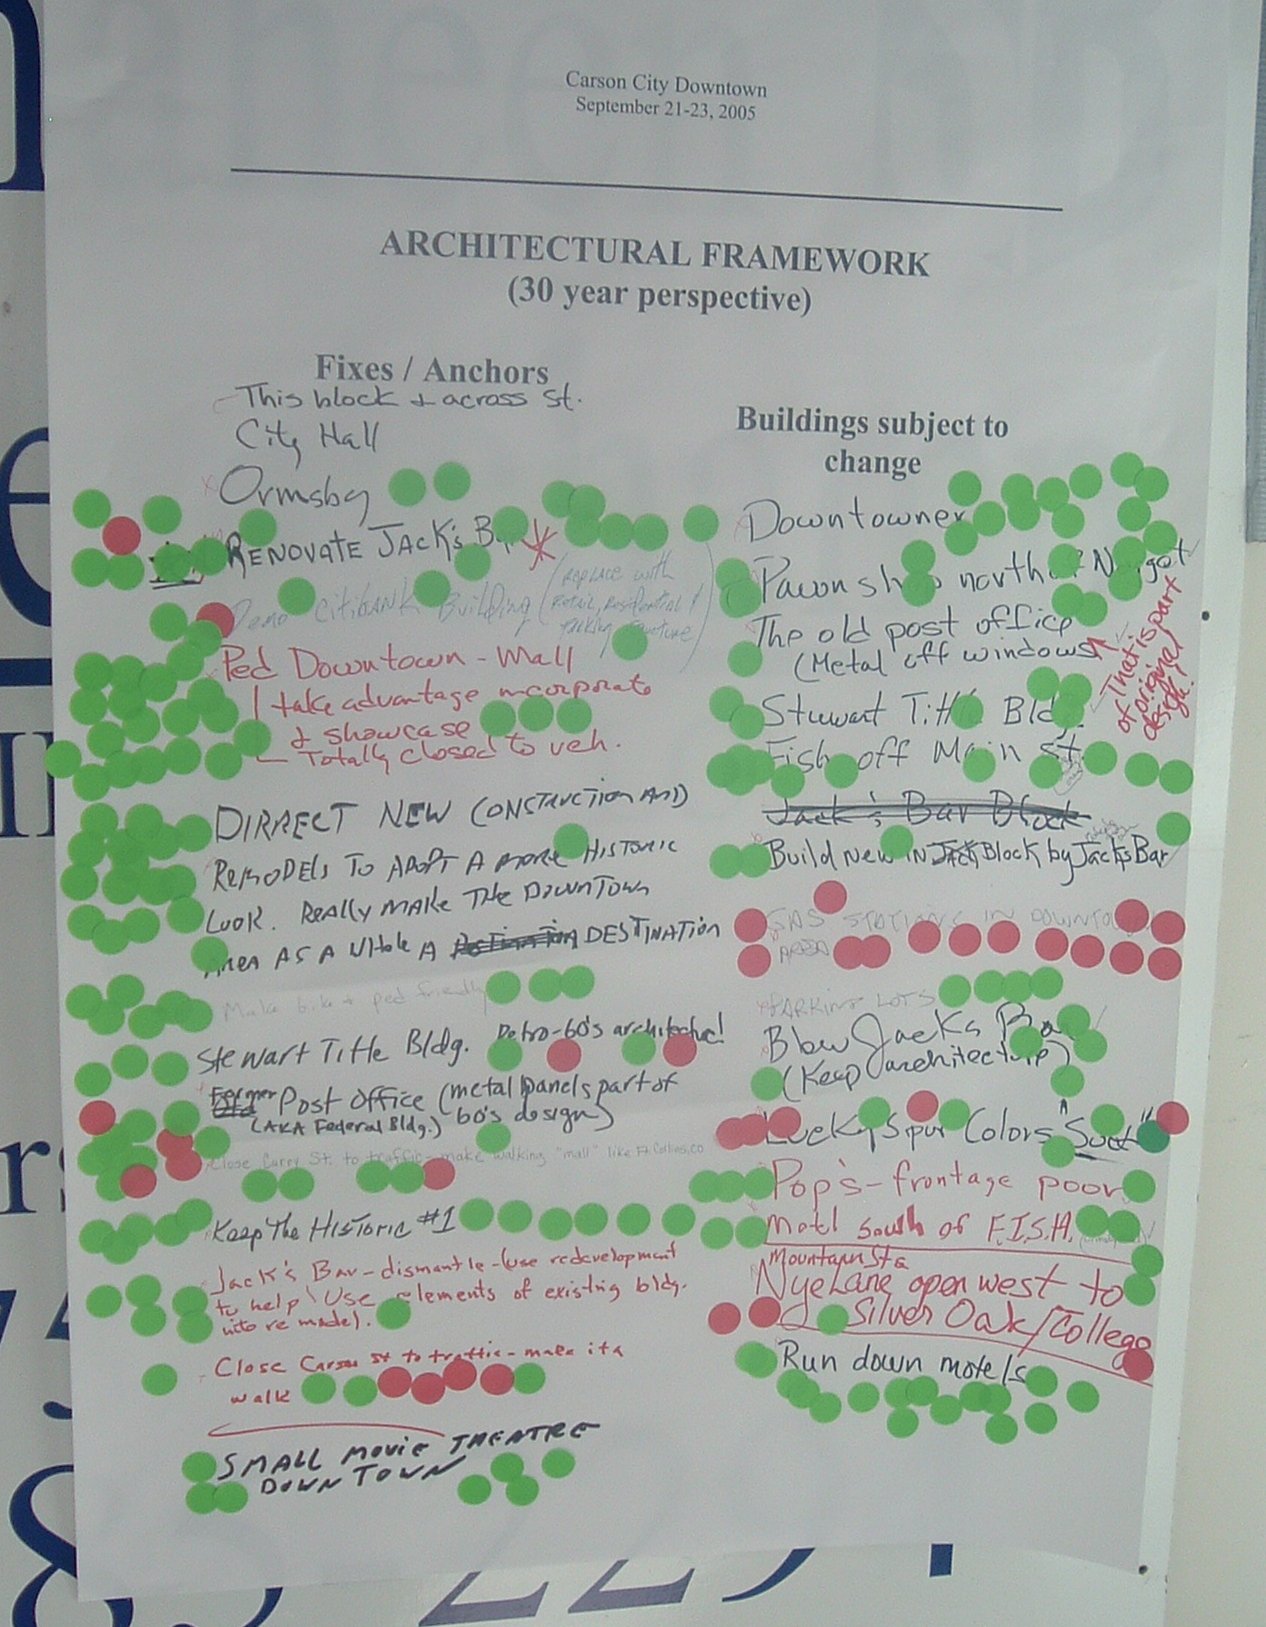 Carson City Downtown
September 21-23, 2005
ARCHITECTURAL FRAMEWORK
(30 year perspective)
Fixes / Anchors
This block + across St.
City Hall
Ormsby
RENOVATE JACK's
Demo Citibank Building (REPLACE with
RETAIL, RESIDENTIAL
Parking
Ped Downtown - Mall
take advantage incorporate
& showcase
Totally closed to veh.
DIRRECT NEW CONSTRUCTION AND
REMODELS TO ADOPT A MORE HISTORIC
LOOK. REALLY MAKE THE DOWNTOWN
AREA AS A WHOLE A DESTINATION
Make bike + ped friendly
Stewart Title Bldg. Retro-60's architecture!
Former Post Office (metal panels part of
(AKA Federal Bldg.) 60's design)
Close Carey St. to traffic - make walking "mall" like Ft Collins, CO
Keep The HISTORIC #1
Jack's Bar - dismantle - (use redevelopment
to help) Use elements of existing bldg.
into remodel.
Close Carson St to traffic - make it a
walk
SMALL MOVIE THEATRE
DOWNTOWN
Buildings subject to
change
Downtowner
Pawn shop north of Nugget
The old post office
(Metal off windows)
That is part
of original
design!
Stewart Title Bldg.
Fish off Main St
Jack's Bar Block
Build New IN Block by Jack's Bar
GAS STATIONS IN DOWNTOWN
AREA
PARKING LOTS
Blow Jacks Bar
(Keep architecture)
Lucky Spur Colors
Pop's - frontage poor
Motl South of F.I.S.H.
Mountain St &
Nye Lane open west to
Silver Oak/College
Run down motels